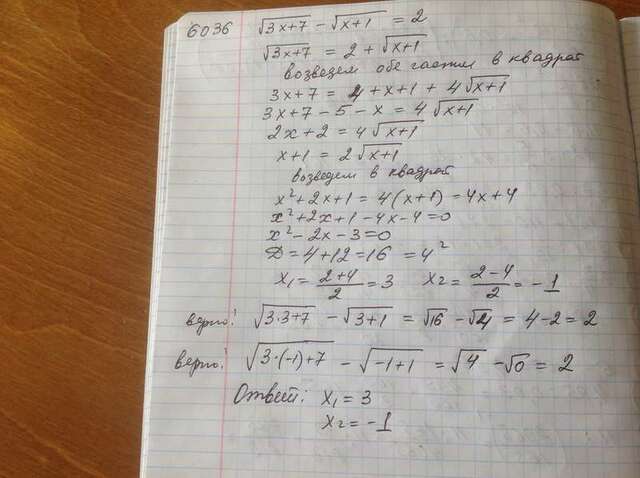 6036 √3x+7 - √x+1 = 2
√3x+7 = 2 + √x+1
возведем обе части в квадрат
3x+7 = 4 + x+1 + 4√x+1
3x+7-5-x = 4√x+1
2x+2 = 4√x+1
x+1 = 2√x+1
возведем в квадрат
x²+2x+1 = 4(x+1) = 4x+4
x²+2x+1-4x-4=0
x²-2x-3=0
D=4+12=16 =4²
x₁=2+4/2=3 x₂=2-4/2=-1
верно! √3·3+7 - √3+1 = √16 - √4 = 4-2=2
верно! √3·(-1)+7 - √-1+1 = √4 - √0 = 2
Ответ: x₁=3
x₂=-1